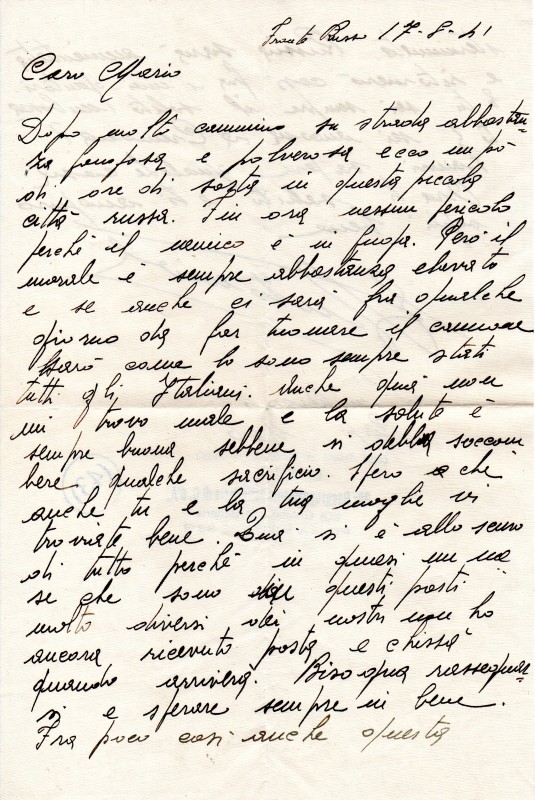 Fronte Russo 17-8-41
Caro Mario
Dopo molto cammino su strada abbastan=
za fangosa e polverosa ecco un pò
di ore di sosta in questa piccola
città russa. Fin ora nessun pericolo
perchè il nemico è in fuga. Però il
morale è sempre abbastanza elevato
e se anche ci sarà fra qualche
giorno da far tuonare il cannone
sarò come lo sono sempre stati
tutti gli Italiani. Anche quà non
mi trovo male e la salute è
sempre buona sebbene si debba soccom
bere qualche sacrificio. Spero a chè
anche tu e la tua moglie vi
troviate bene. Quà si è allo scuro
di tutto perchè in quasi un me
se che sono in questi posti
molto diversi dei nostri non ho
ancora ricevuto posta e chissà
quando arriverà. Bisogna rassegnar=
si e sperare sempre in bene.
Fra poco così anche questa